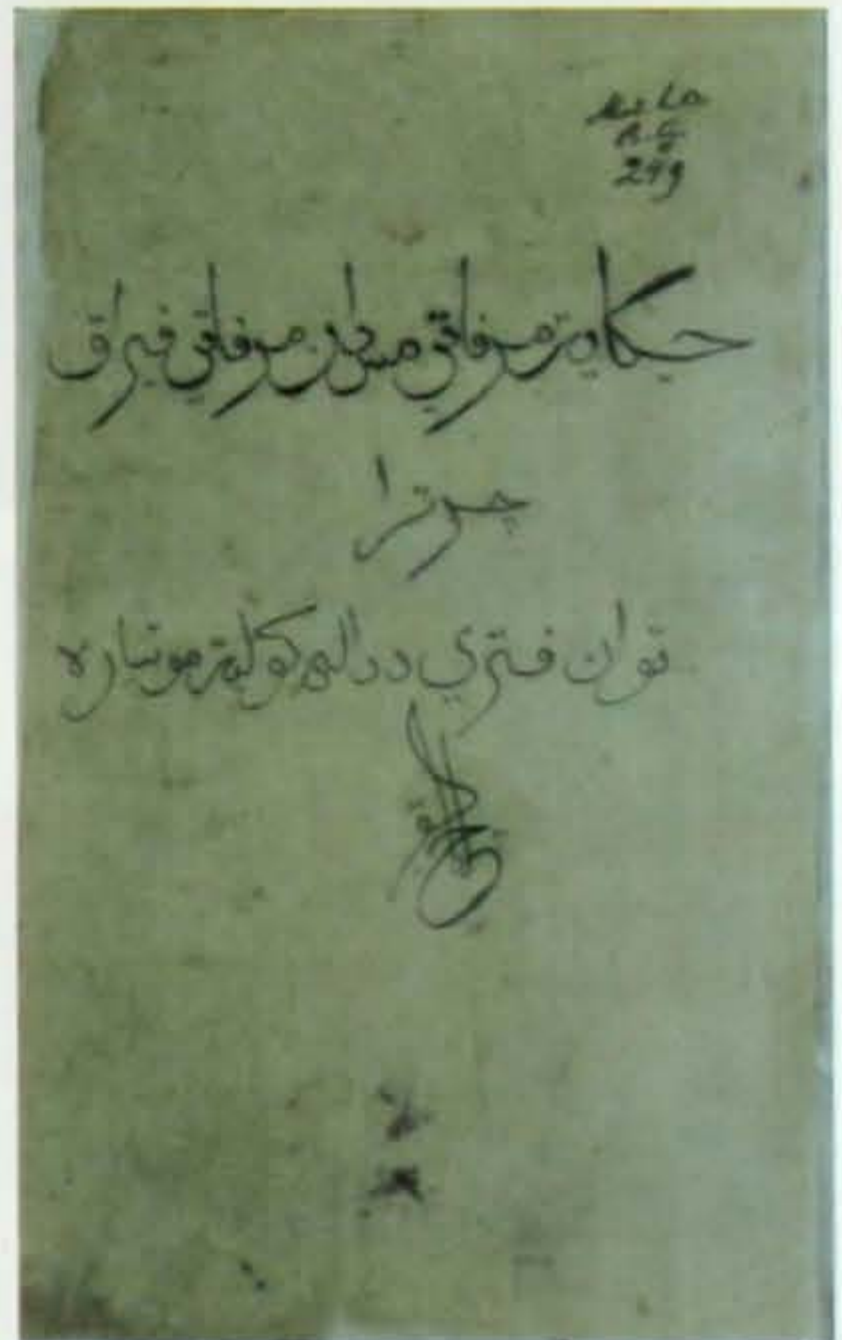 249
حكاية مرفاتي مس دان مرفاتي فيراق
چرترا
توان فتري ددالم كوليت موتياره